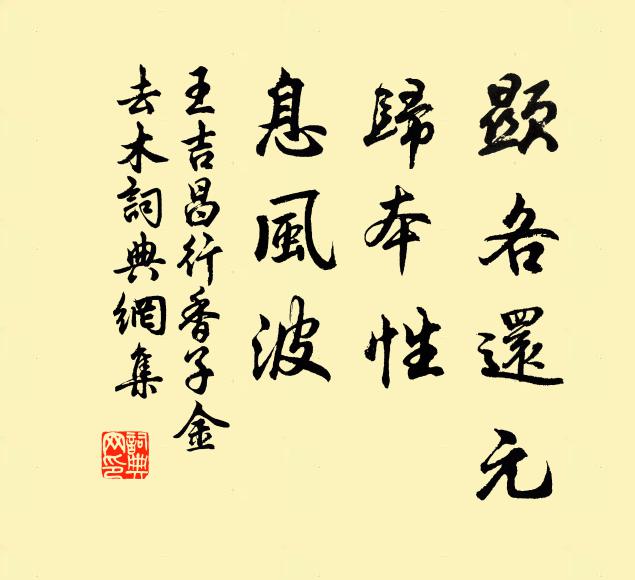 顯各還元
歸本性
息風波
王吉昌行香子金
去木詞典網集
詞典网印